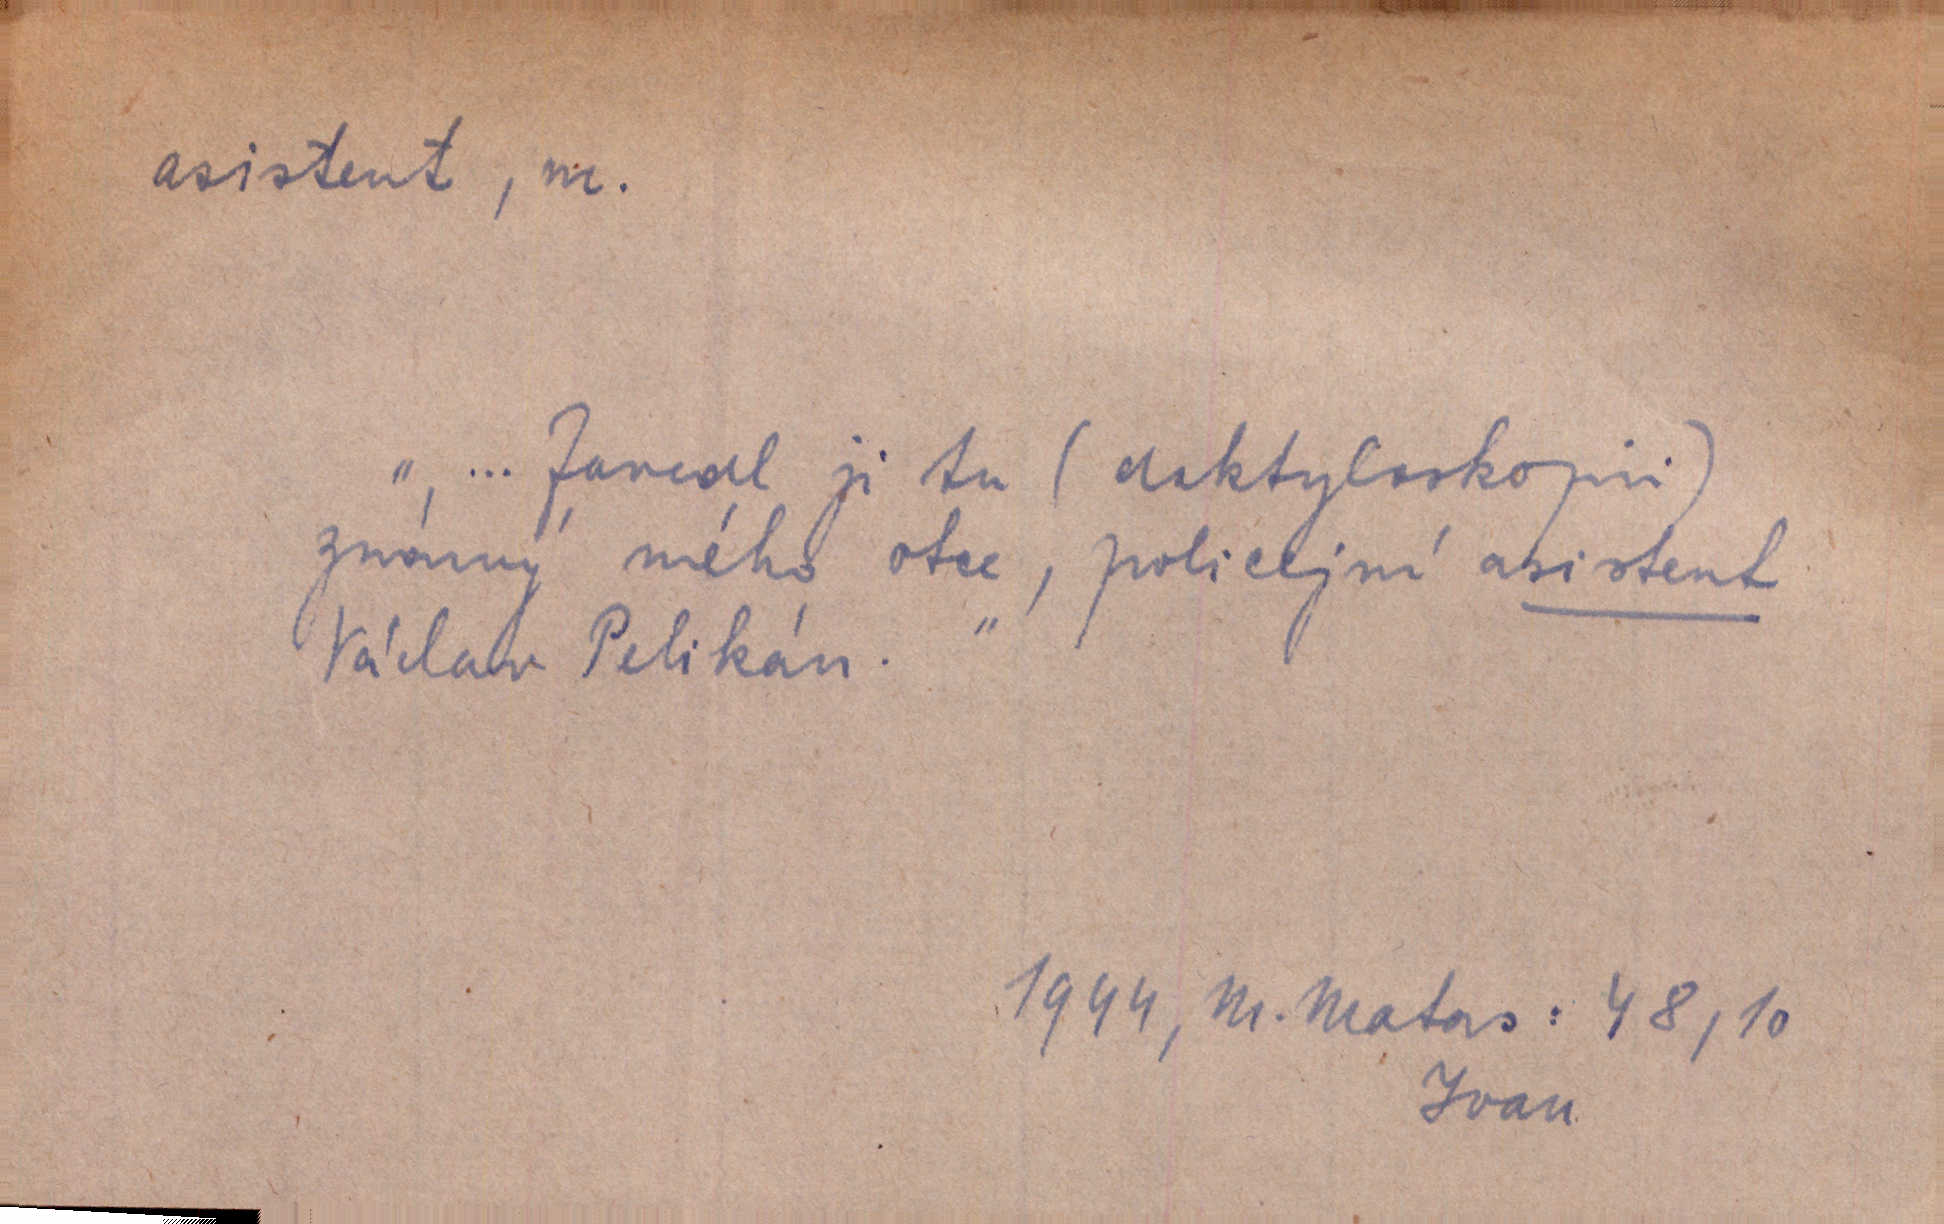 asistent, m.
"‚ ... Zavedl ji tu (daktyloskopii)
známý mého otce, policejní asistent
Václav Pelikán. "
1944, M. Matas: 48, 10
Ivan